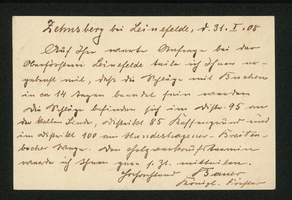 Zehnsberg bei Leinefelde, d. 31. I. 08
Auf Ihre werte Anfrage bei der
Oberförsterei Leinefelde teile ich Ihnen
mit, daß die Schläge mit Buchen
in ca 14 Tagen beendet sein werden
Die Schläge befinden sich im Distr. 95 an
der Linde, Distrikt 85
und im Distrikt 100 am
Wege. Den Holzverkaufstermin
werde ich Ihnen s. Zt. mitteilen.
Hochachtend Bauer
Königl. Förster